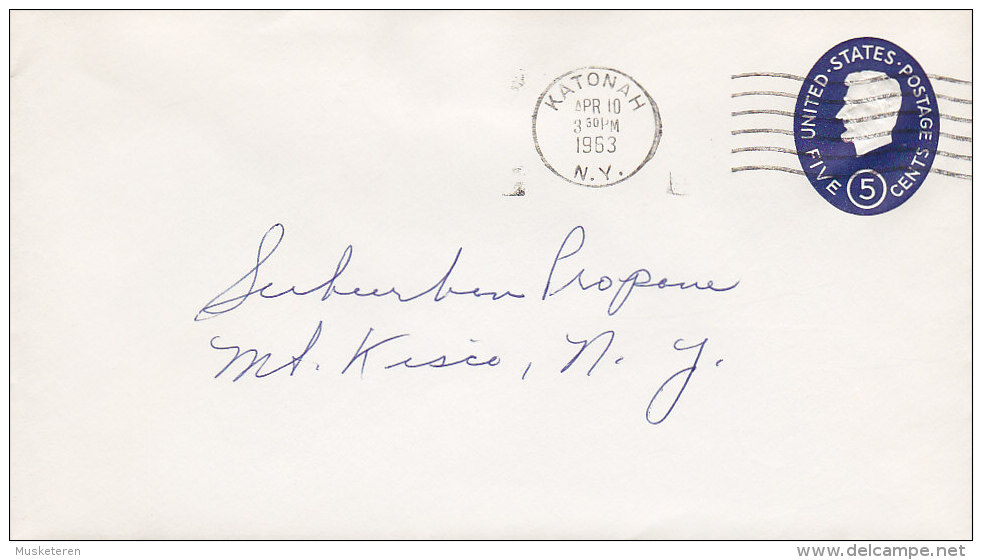 KATONAH
APR 10
3 30 PM
1963
N.Y.
UNITED·STATES·POSTAGE
FIVE 5 CENTS
Suburban Propane
Mt. Kisco, N. Y.
Musketeren
delcampe.net